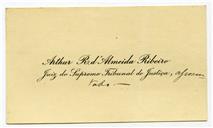 Arthur R. d'Almeida Ribeiro
Juiz do Supremo Tribunal de Justiça,